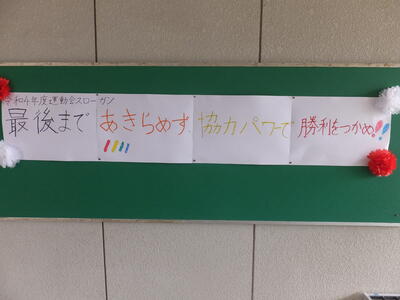 令和4年度運動会スローガン
最後まで あきらめず、協力パワーで 勝利をつかめ!!